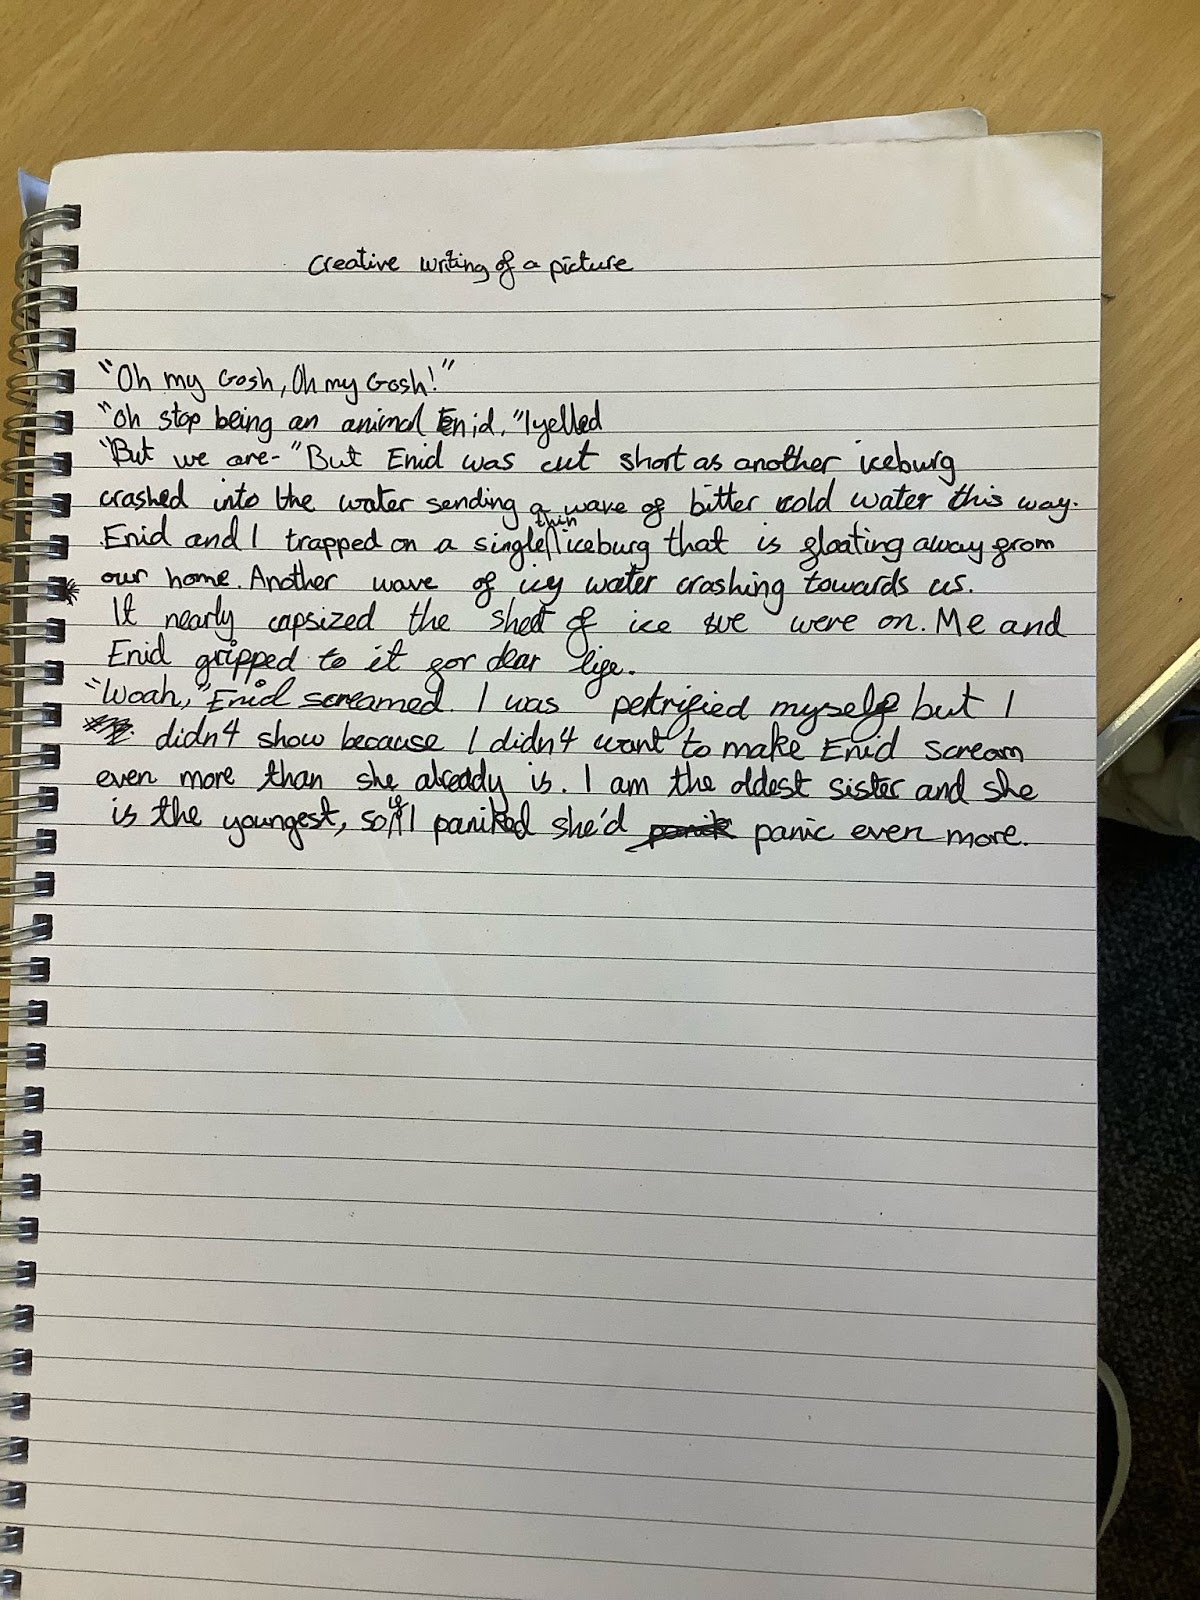 creative writing of a picture
"Oh my Gosh, Oh my Gosh!"
"Oh stop being an animal Enid, "I yelled
"But we are- "But Enid was cut short as another iceburg
crashed into the water sending a wave of bitter cold water this way.
Enid and I trapped on a single thin iceburg that is floating away from
our home. Another wave of icy water crashing towards us.
It nearly capsized the sheet of ice we were on. Me and
Enid gripped to it for dear life.
"Woah," Enid screamed. I was petrified myself but I
didn't show because I didn't want to make Enid scream
even more than she already is. I am the oldest sister and she
is the youngest, so if I paniked she'd panic even more.